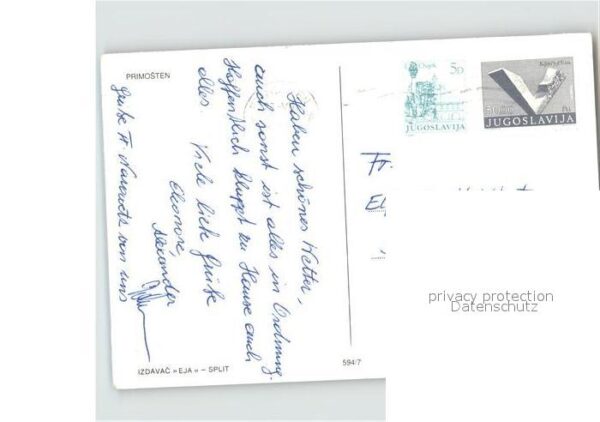 PRIMOŠTEN
Haben schönes Wetter,
auch sonst ist alles in Ordnung.
Hoffentlich klappt zu Hause auch
alles. Viele liebe Grüße
Eleonore,
Alexander
Grüße Fr. von uns
Osijek 5D
JUGOSLAVIJA
JUGOSLAVIJA
Fr.
privacy protection
Datenschutz
IZDAVAČ »EJA« – SPLIT
594/7